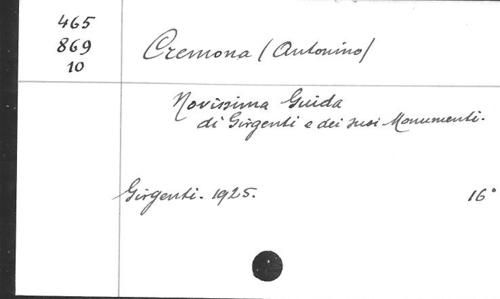 465
869
10
Cremona (Antonino)
Novissima Guida
di Girgenti e dei suoi Monumenti.
Girgenti. 1925. 16°